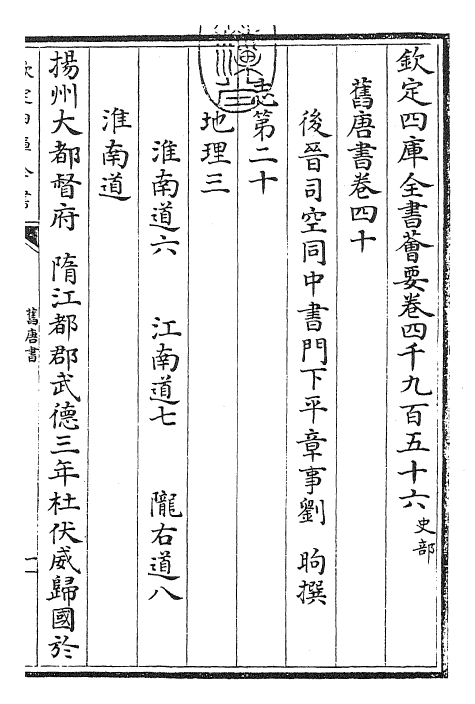 欽定四庫全書薈要卷四千九百五十六史部
舊唐書卷四十
後晉司空同中書門下平章事劉　昫撰
志第二十
地理三
淮南道六　江南道七　隴右道八
淮南道
揚州大都督府　隋江都郡武德三年杜伏威歸國於
舊唐書
一